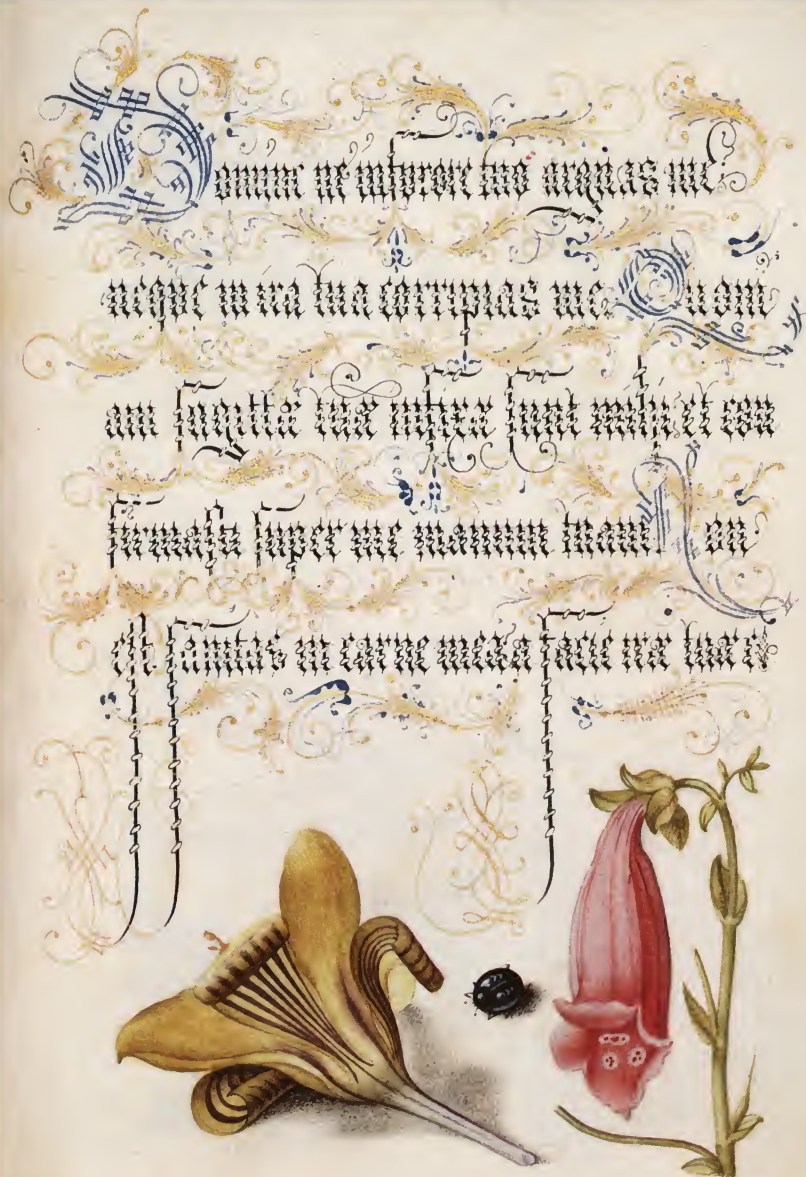 Domine ne in furore tuo arguas me:
neque in ira tua corripias me. Quoni
am sagittæ tuæ infixæ sunt mihi: et con
firmasti super me manum tuam. Non
est sanitas in carne mea a facie iræ tuæ: